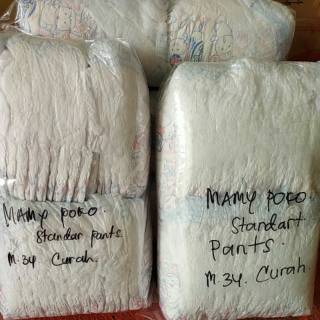 MAMY POKO.
Standar pants.
M.34. Curah.
MAMY POKO
Standart
Pants.
M.34. Curah.